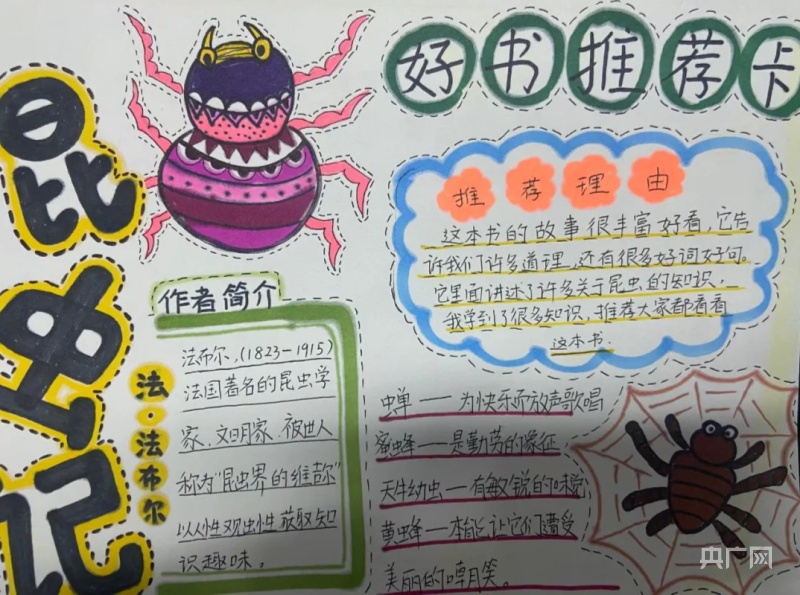 好书推荐卡
昆虫记
法·法布尔
推荐理由
这本书的故事很丰富好看，它告
诉我们许多道理，还有很多好词好句。
它里面讲述了许多关于昆虫的知识，
我学到了很多知识，推荐大家都看看
这本书.
作者简介
法布尔，(1823-1915)
法国著名的昆虫学
家，文明家，被世人
称为"昆虫界的维
以人性观出性获取知
识趣味。
蝉——为快乐而放声歌唱
蜜蜂——是勤劳的像征
天牛幼虫——有敏锐的味觉
黄蜂——本能让它们遭受
美丽的
央广网